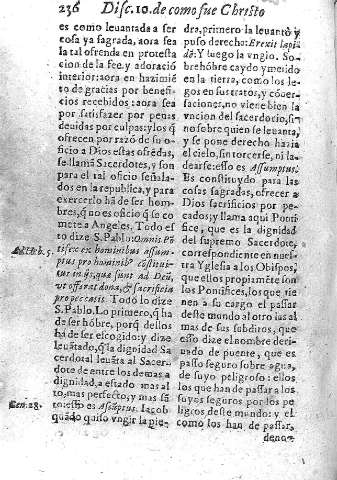 236 Disc. 10. de como fue Christo
es como leuantada a ser
cosa ya sagrada, aora sea
la tal ofrenda en protesta
cion de la Fee, y adoració
interior: aora en hazimié
to de gracias por benefi-
cios recebidos: aora sea
por satisfazer por penas
deuidas por culpas: y los q̃
ofrecen por razõ de su ofi
cio a Dios estas ofrẽdas,
se llamã Sacerdotes, y son
para el tal oficio señala-
dos en la republica, y para
exercerlo há de ser hom-
bres, q̃ no es oficio q̃ se co
mete a Angeles. Todo esto
dize S. Pablo: Omnis Põ
tifex ex hominibus assum-
ptus pro hominibus cõstitui-
tur in ijs, quæ sunt ad Deũ,
vt offerat dona, & sacrificia
pro peccatis. Todo lo dize
S. Pablo. Lo primero, q̃ ha
de ser hõbre, porq̃ dellos
ha de ser escogido: y dize
leuãtado, q̃ la dignidad Sa
cerdotal leuãta al Sacer-
dote de entre los demas a
dignidad, a estado mas al
to, mas perfecto; y mas sã
to: esto es Assũptus. Iacob
quãdo quiso vngir la pie-
Heb. 5.
Gen. 28.
dra, primero la leuantò y
puso derecha: Erexit lapi-
dẽ: Y luego la vngio. So-
bre hõbre caydo y metido
en la tierra, como los le-
gos en sus tratos, y cõuer-
saciones, no viene bien la
vncion del sacerdocio, si
no sobre quien se leuanta,
y se pone derecho hazia
el cielo, sin torcerse, ni la
dearse: esso es Assumptus.
Es constituydo para las
cosas sagradas, ofrecer a
Dios sacrificios por pe-
cados; y llama aqui Ponti
fice, que es la dignidad
del supremo Sacerdote,
correspondiente en nues-
tra Yglesia a los Obispos,
que ellos propiamẽte son
los Pontifices, los que tie-
nen a su cargo el passar
deste mundo al otro las al
mas de sus subditos, que
esso dize el nombre deri-
uado de puente, que es
passo seguro sobre agua,
de suyo peligroso: ellos
los que han de passar a los
suyos seguros por los pe-
ligros deste mundo: y el
como los han de passar,